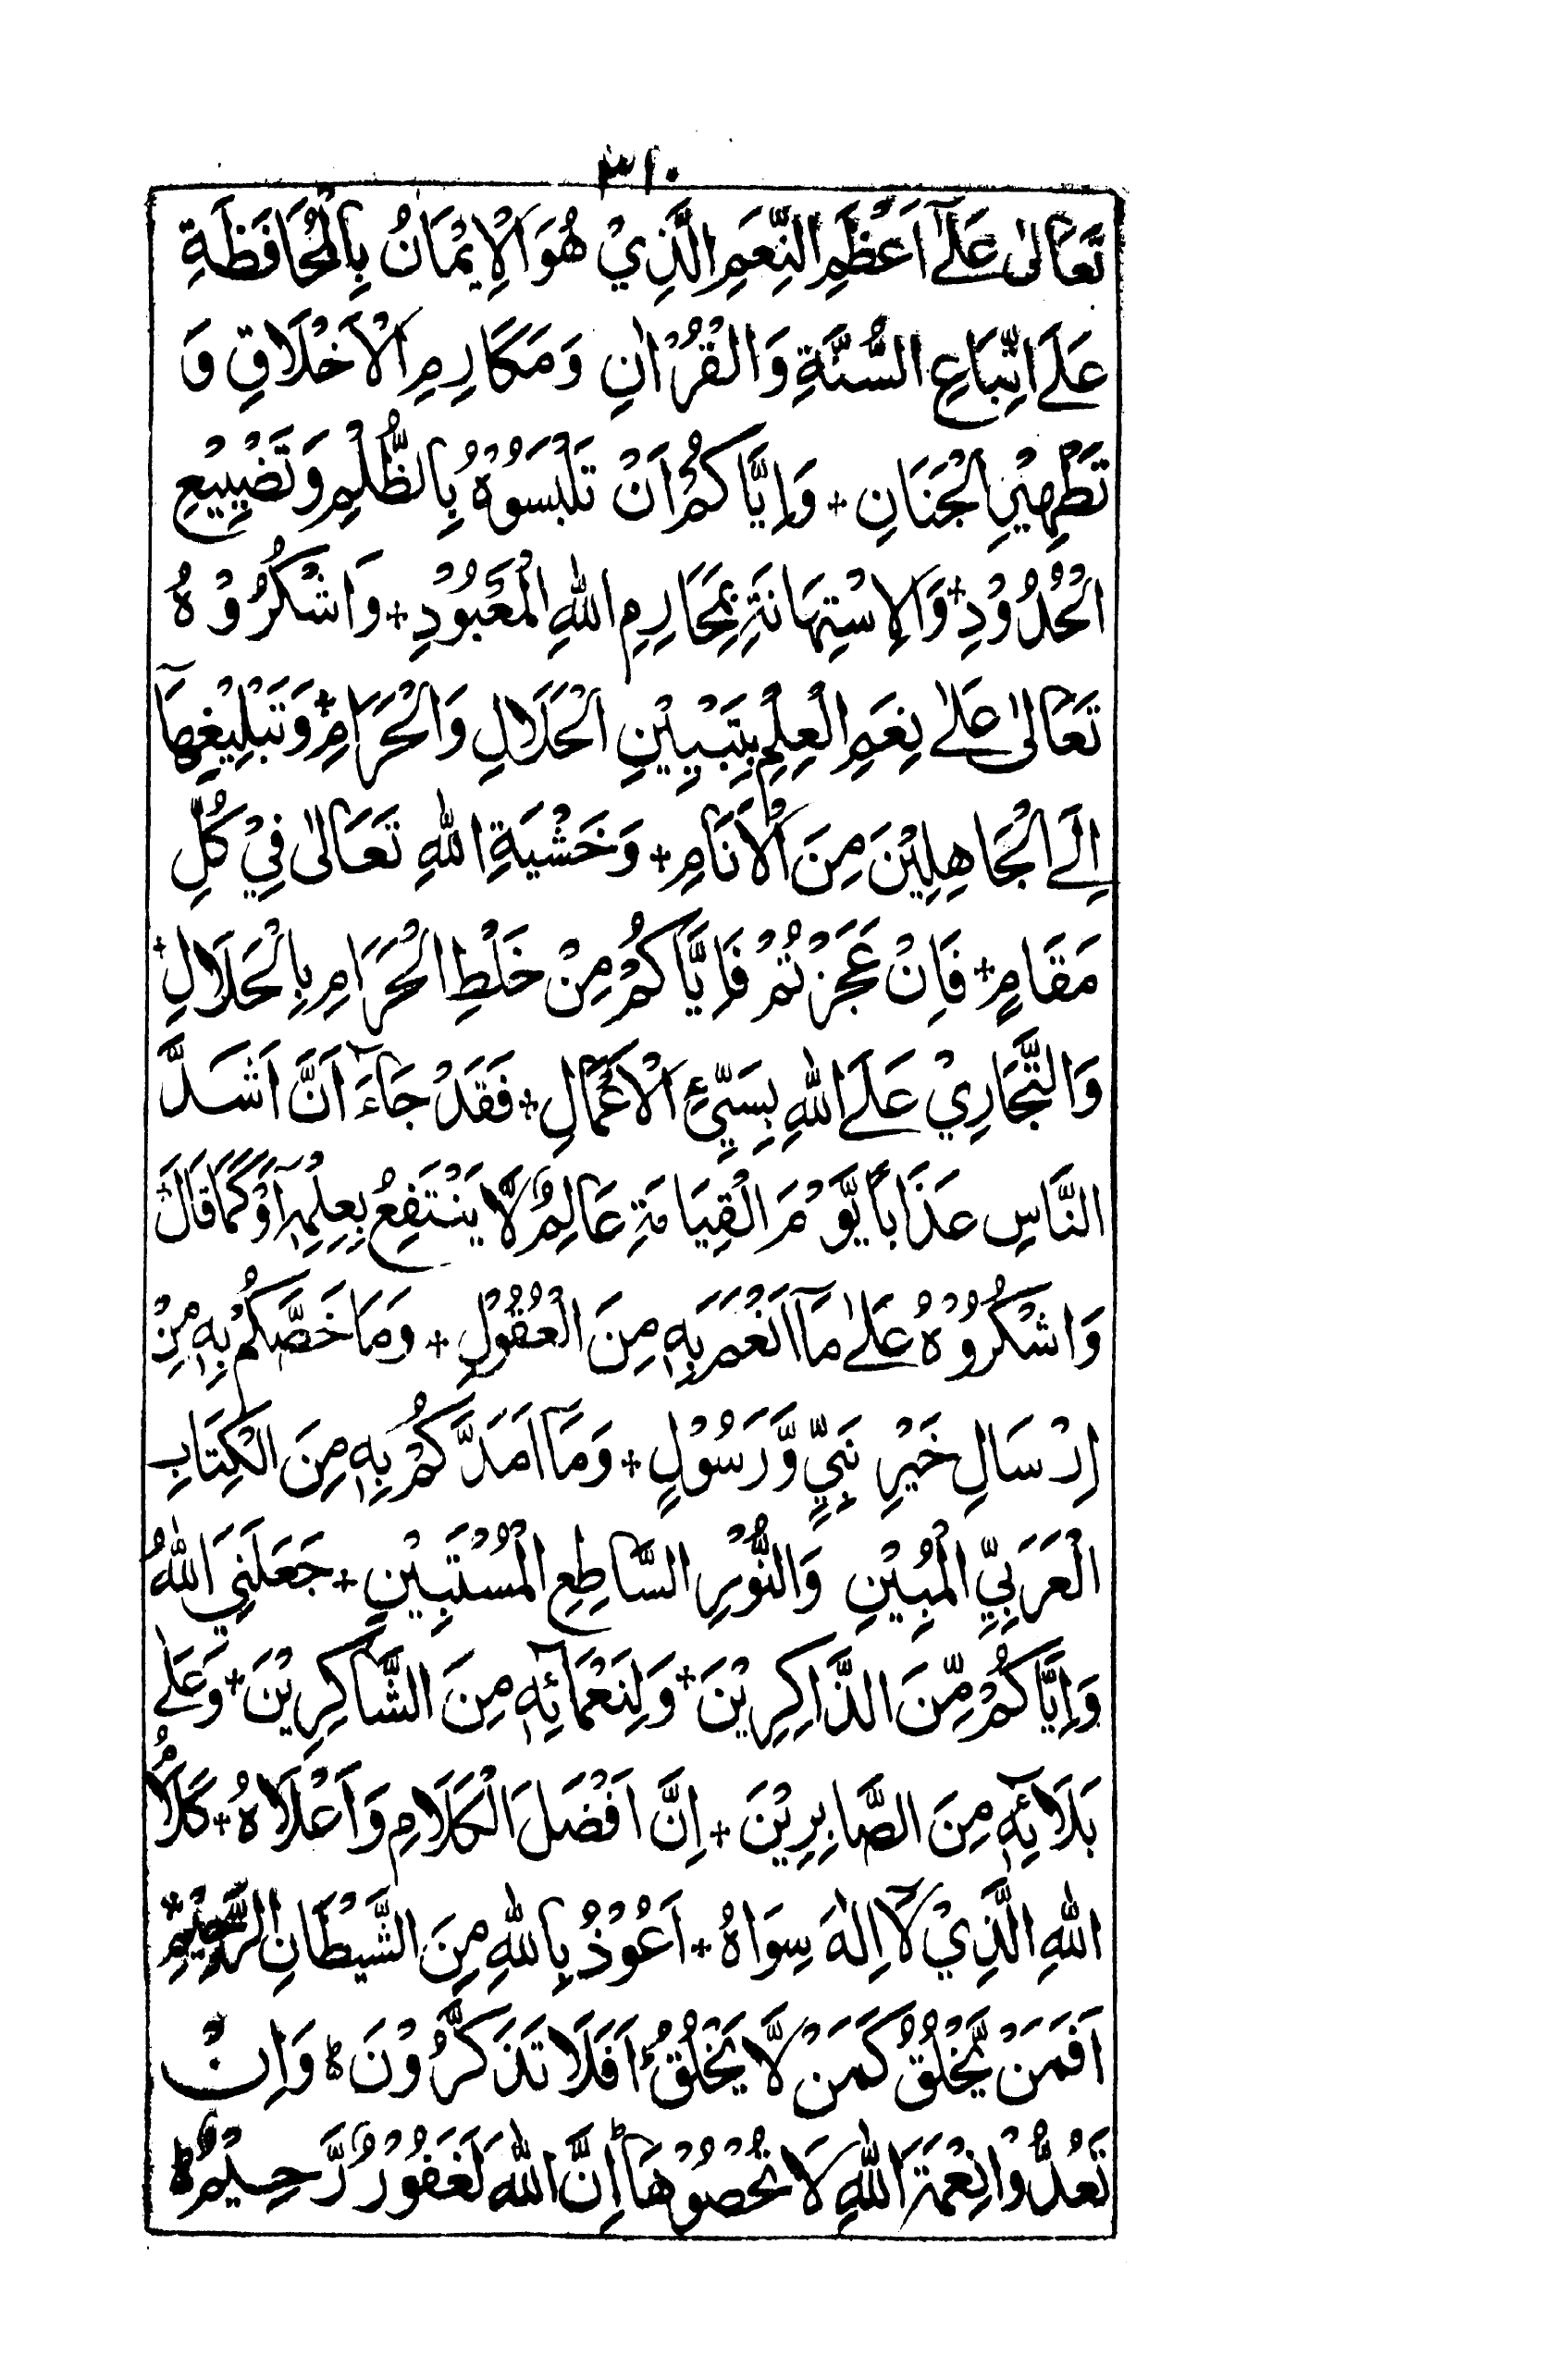 ٣١٠
تَعَالٰى عَلٰٓى اَعْظَمِ النِّعَمِ الَّذِيْ هُوَ الْاِيْمَانُ بِالْمُحَافَظَةِ
عَلَى اتِّبَاعِ السُّنَّةِ وَالْقُرْاٰنِ وَمَكَارِمِ الْاَخْلَاقِ وَ
تَطْهِيْرِ الْجَنَانِ + وَاِيَّاكُمْ اَنْ تَلْبَسُوْهُ بِالظُّلْمِ وَتَضْيِيْعِ
الْحُدُوْدِ + وَالْاِسْتِهَانَةِ بِمَحَارِمِ اللّٰهِ الْمَعْبُوْدِ + وَاشْكُرُوْهُ
تَعَالٰى عَلٰى نِعَمِ الْعِلْمِ بِتَبْيِيْنِ الْحَلَالِ وَالْحَرَامِ + وَتَبْلِيْغِهَآ
اِلَى الْجَاهِلِيْنَ مِنَ الْاَنَامِ + وَخَشْيَةِ اللّٰهِ تَعَالٰى فِيْ كُلِّ
مَقَامٍ + فَاِنْ عَجَزْتُمْ فَاِيَّاكُمْ مِنْ خَلْطِ الْحَرَامِ بِالْحَلَالِ +
وَالتَّجَارِيْ عَلَى اللّٰهِ بِسَيِّئِ الْاَعْمَالِ + فَقَدْ جَآءَ اَنَّ اَشَدَّ
النَّاسِ عَذَابًا يَّوْمَ الْقِيَامَةِ عَالِمٌ لَّا يَنْتَفِعُ بِعِلْمِهٖٓ اَوْ كَمَا قَالَ +
وَاشْكُرُوْهُ عَلٰى مَآ اَنْعَمَ بِهٖ مِنَ الْعُقُوْلِ + وَمَا خَصَّكُمْ بِهٖ مِنْ
اِرْسَالِ خَيْرِ نَبِيٍّ وَّرَسُوْلٍ + وَمَآ اَمَدَّكُمْ بِهٖ مِنَ الْكِتَابِ
الْعَرَبِيِّ الْمُبِيْنِ وَالنُّوْرِ السَّاطِعِ الْمُسْتَبِيْنِ + جَعَلَنِيَ اللّٰهُ
وَاِيَّاكُمْ مِّنَ الذَّاكِرِيْنَ + وَلِنَعْمَائِهٖ مِنَ الشَّاكِرِيْنَ + وَعَلٰى
بَلَآئِهٖ مِنَ الصَّابِرِيْنَ + اِنَّ اَفْضَلَ الْكَلَامِ وَاَعْلَاهُ + كَلَامُ
اللّٰهِ الَّذِيْ لَآ اِلٰهَ سِوَاهُ + اَعُوْذُ بِاللّٰهِ مِنَ الشَّيْطَانِ الرَّجِيْمِ +
اَفَمَنْ يَّخْلُقُ كَمَنْ لَّا يَخْلُقُ ؕ اَفَلَا تَذَكَّرُوْنَ ؕ وَاِنْ
تَعُدُّوْا نِعْمَةَ اللّٰهِ لَا تُحْصُوْهَا ؕ اِنَّ اللّٰهَ لَغَفُوْرٌ رَّحِيْمٌ ؕ